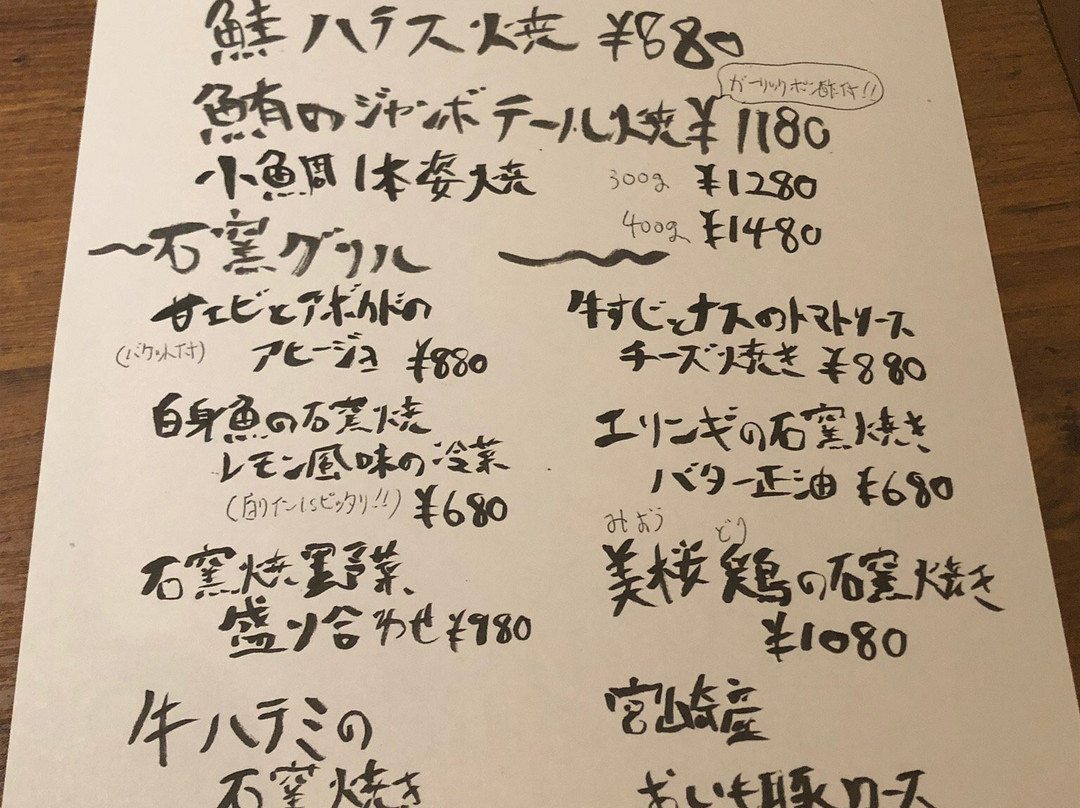 鮭ハラス焼 ¥880
ガーリックポン酢付!!
鮪のジャンボテール焼 ¥1180
小鯛1本姿焼 300g ¥1280
400g ¥1480
〜石窯グリル 〜
甘エビとアボカドの
(バケット付) アヒージョ ¥880
白身魚の石窯焼
レモン風味の冷菜
(白ワインにピッタリ!!) ¥680
石窯焼野菜
盛り合わせ ¥980
牛ハラミの
石窯焼き
牛すじとナスのトマトソース
チーズ焼き ¥880
エリンギの石窯焼き
バター正油 ¥680
みおう どり
美桜鶏の石窯焼き
¥1080
宮崎産
おいも豚ロース